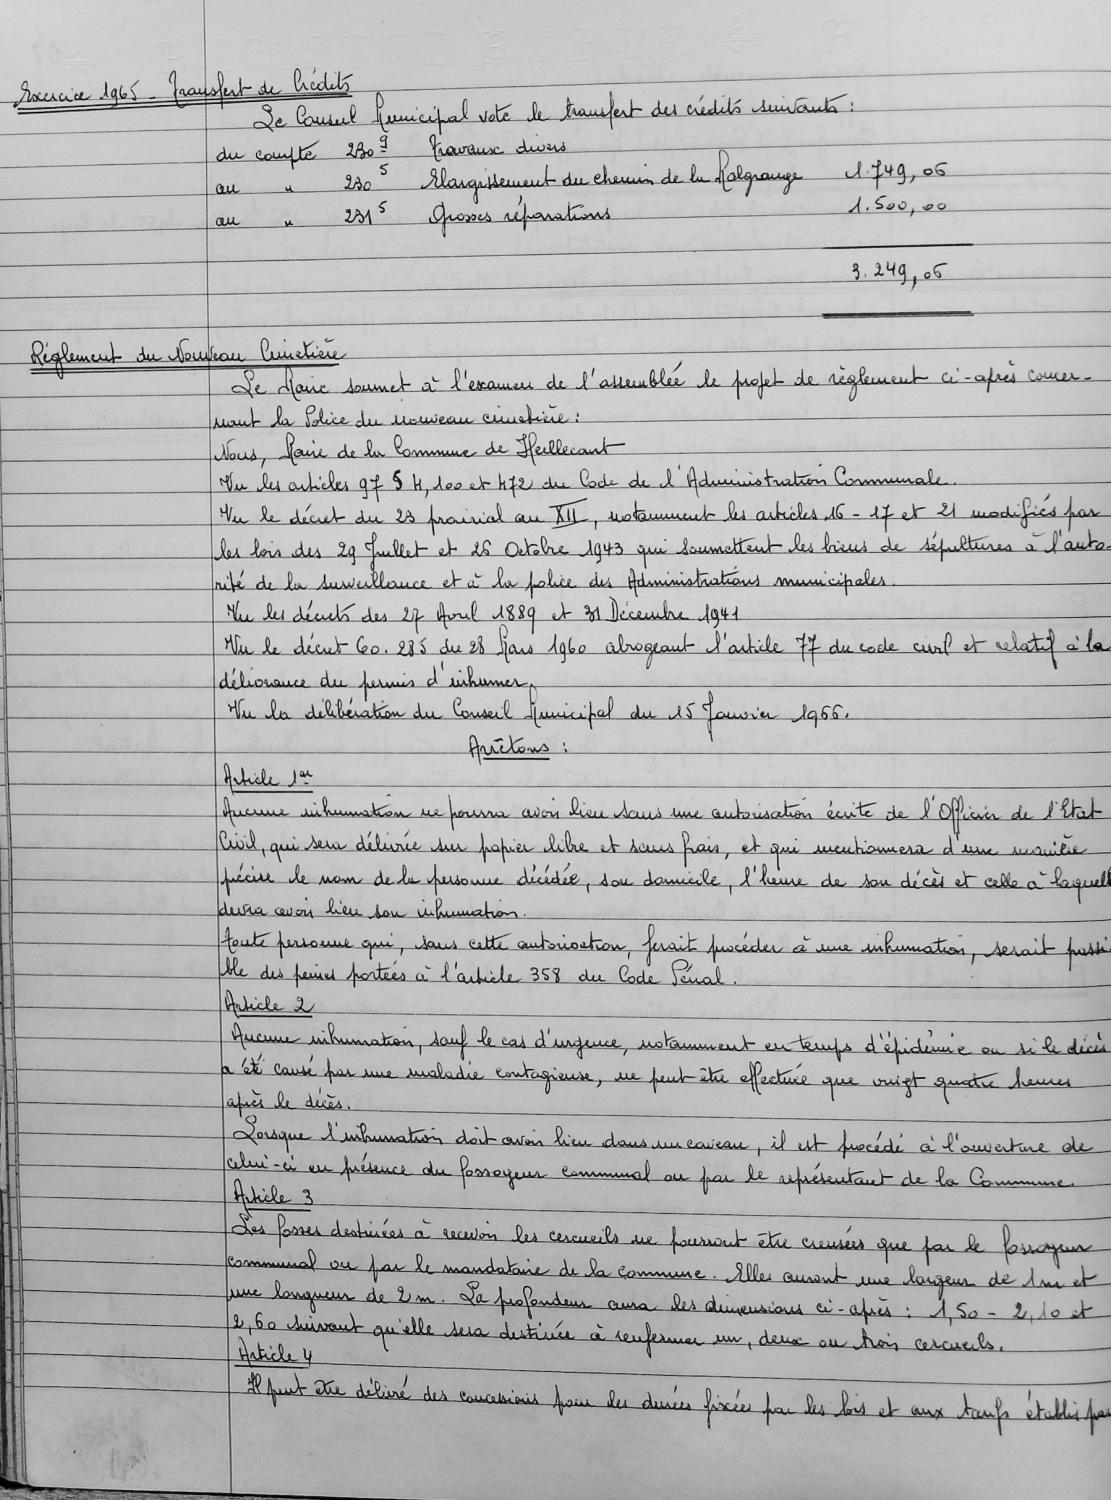 Exercice 1965 - Transfert de Crédits
Le Conseil Municipal vote le transfert des crédits suivants :
du compte 230 9 Travaux divers
au " 230 5 Elargissement du chemin de la Malgrange 1.749,06
au " 231 5 Grosses réparations 1.500,00
3.249,06
Réglement du Nouveau Cimetière
Le Maire soumet à l'examen de l'assemblée le projet de règlement ci-après concer-
nant la Police du nouveau cimetière :
Nous, Maire de la Commune de Heillecourt
Vu les articles 97 § 4, 100 et 472 du Code de l'Administration Communale.
Vu le décret du 23 prairial an XII, notamment les articles 16 - 17 et 21 modifiés par
les lois des 29 Juillet et 26 Octobre 1943 qui soumettent les lieux de sépultures à l'auto-
rité de la surveillance et à la police des Administrations municipales.
Vu les décrets des 27 Avril 1889 et 31 Décembre 1941
Vu le décret 60.285 du 28 Mars 1960 abrogeant l'article 77 du code civil et relatif à la
délivrance du permis d'inhumer,
Vu la délibération du Conseil Municipal du 15 Janvier 1966.
Arrêtons :
Article 1er
Aucune inhumation ne pourra avoir lieu sans une autorisation écrite de l'Officier de l'Etat
Civil, qui sera délivrée sur papier libre et sans frais, et qui mentionnera d'une manière
précise le nom de la personne décédée, son domicile, l'heure de son décès et celle à laquelle
devra avoir lieu son inhumation.
Toute personne qui, sans cette autorisation, ferait procéder à une inhumation, serait passi
ble des peines portées à l'article 358 du Code Pénal.
Article 2
Aucune inhumation, sauf le cas d'urgence, notamment en temps d'épidémie ou si le décès
a été causé par une maladie contagieuse, ne peut être effectuée que vingt quatre heures
après le décès.
Lorsque l'inhumation doit avoir lieu dans un caveau, il est procédé à l'ouverture de
celui-ci en présence du fossoyeur communal ou par le représentant de la Commune.
Article 3
Les fosses destinées à recevoir les cercueils ne pourront être creusées que par le fossoyeur
communal ou par le mandataire de la commune. Elles auront une largeur de 1m et
une longueur de 2m. La profondeur aura les dimensions ci-après : 1,50 - 2,10 et
2,60 suivant qu'elle sera destinée à renfermer un, deux ou trois cercueils.
Article 4
Il peut être délivré des concessions pour les durées fixées par les lois et aux tarifs établis par